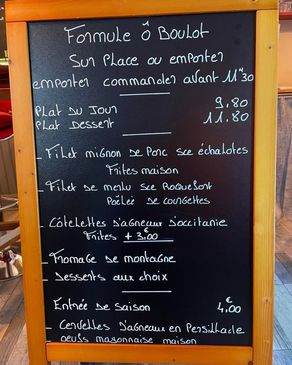 Formule ô Boulot
Sur Place ou emporter
emporter commander avant 11"30
Plat Du Jour 9.80
Plat Dessert 11.80
_ Filet mignon de Porc sce échalotes
Frites maison
_ Filet de merlu sce Roquefort
Poêlée de courgettes
_ Côtelettes D'agneaux D'occitanie
Frites + 3.00 €
_ Fromage de montagne
_ Desserts aux choix
Entrée de saison 4,00 €
_ Cervelles D'agneaux en Persillade
_ oeufs mayonnaise maison